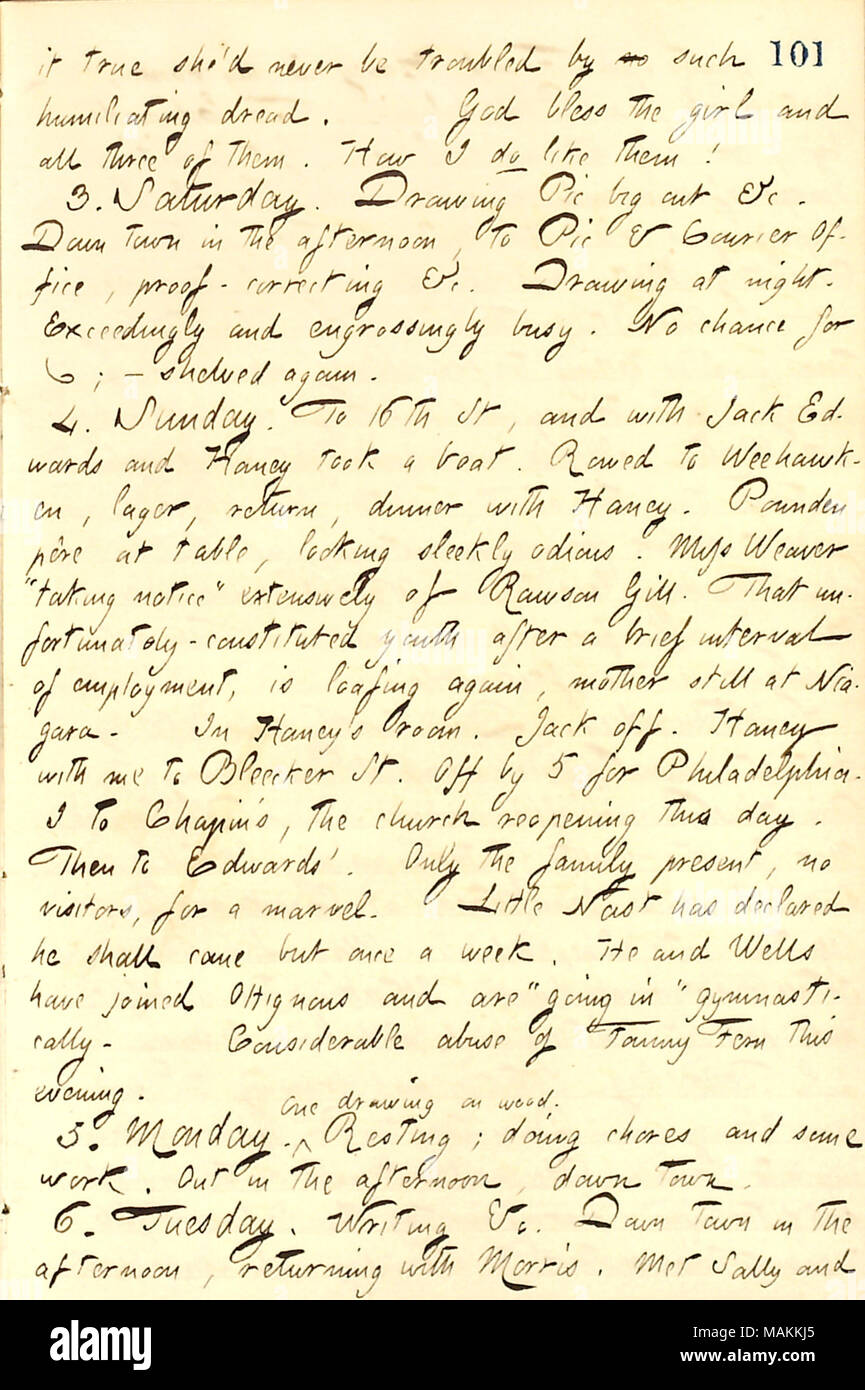 it true she'd never be troubled by no such 101
humiliating dread. God bless the girl and
all three of them. How I do like them!
3. Saturday. Drawing Pic big cut &c.
Down town in the afternoon, to Pic & Courier Of-
fice, proof-correcting &c. Drawing at night.
Exceedingly and engrossingly busy. No chance for
; — shelved again.
4. Sunday. To 16th St, and with Jack Ed-
wards and Haney took a boat. Rowed to Weehawk-
en, lager, return, dinner with Haney. Pounden
père at table, looking sleekly odious. Miss Weaver
"taking notice" extensively of Rawson Gill. That un-
fortunately-constituted youth after a brief interval
of employment, is loafing again, mother still at Nia-
gara. In Haney's room. Jack off. Haney
with me to Bleecker St. Off by 5 for Philadelphia.
I to Chapin's, the church reopening this day.
Then to Edwards'. Only the family present, no
visitors, for a marvel. Little Nast has declared
he shall come but once a week. He and Wells
have joined Ottignons and are "going in" gymnasti-
cally. Considerable abuse of Fanny Fern this
evening.
One drawing on wood.
5. Monday. ^ Resting; doing chores and some
work. Out in the afternoon, down town.
6. Tuesday. Writing &c. Down town in the
afternoon, returning with Morris. Met Sally and
alamy
Image ID: MAKKJ5
www.alamy.com